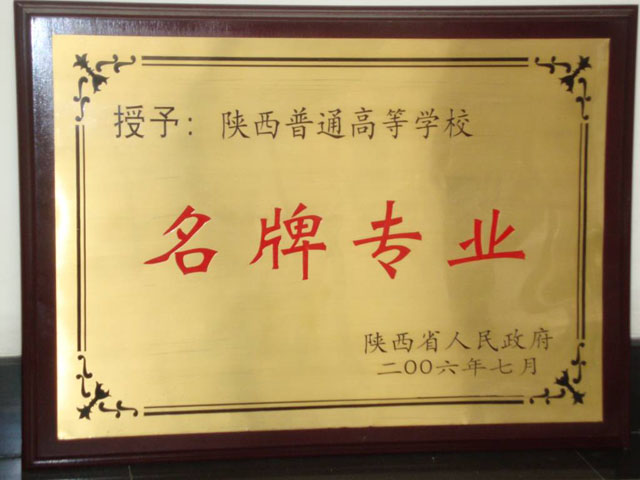 授予：陕西普通高等学校
名牌专业
陕西省人民政府
二〇〇六年七月